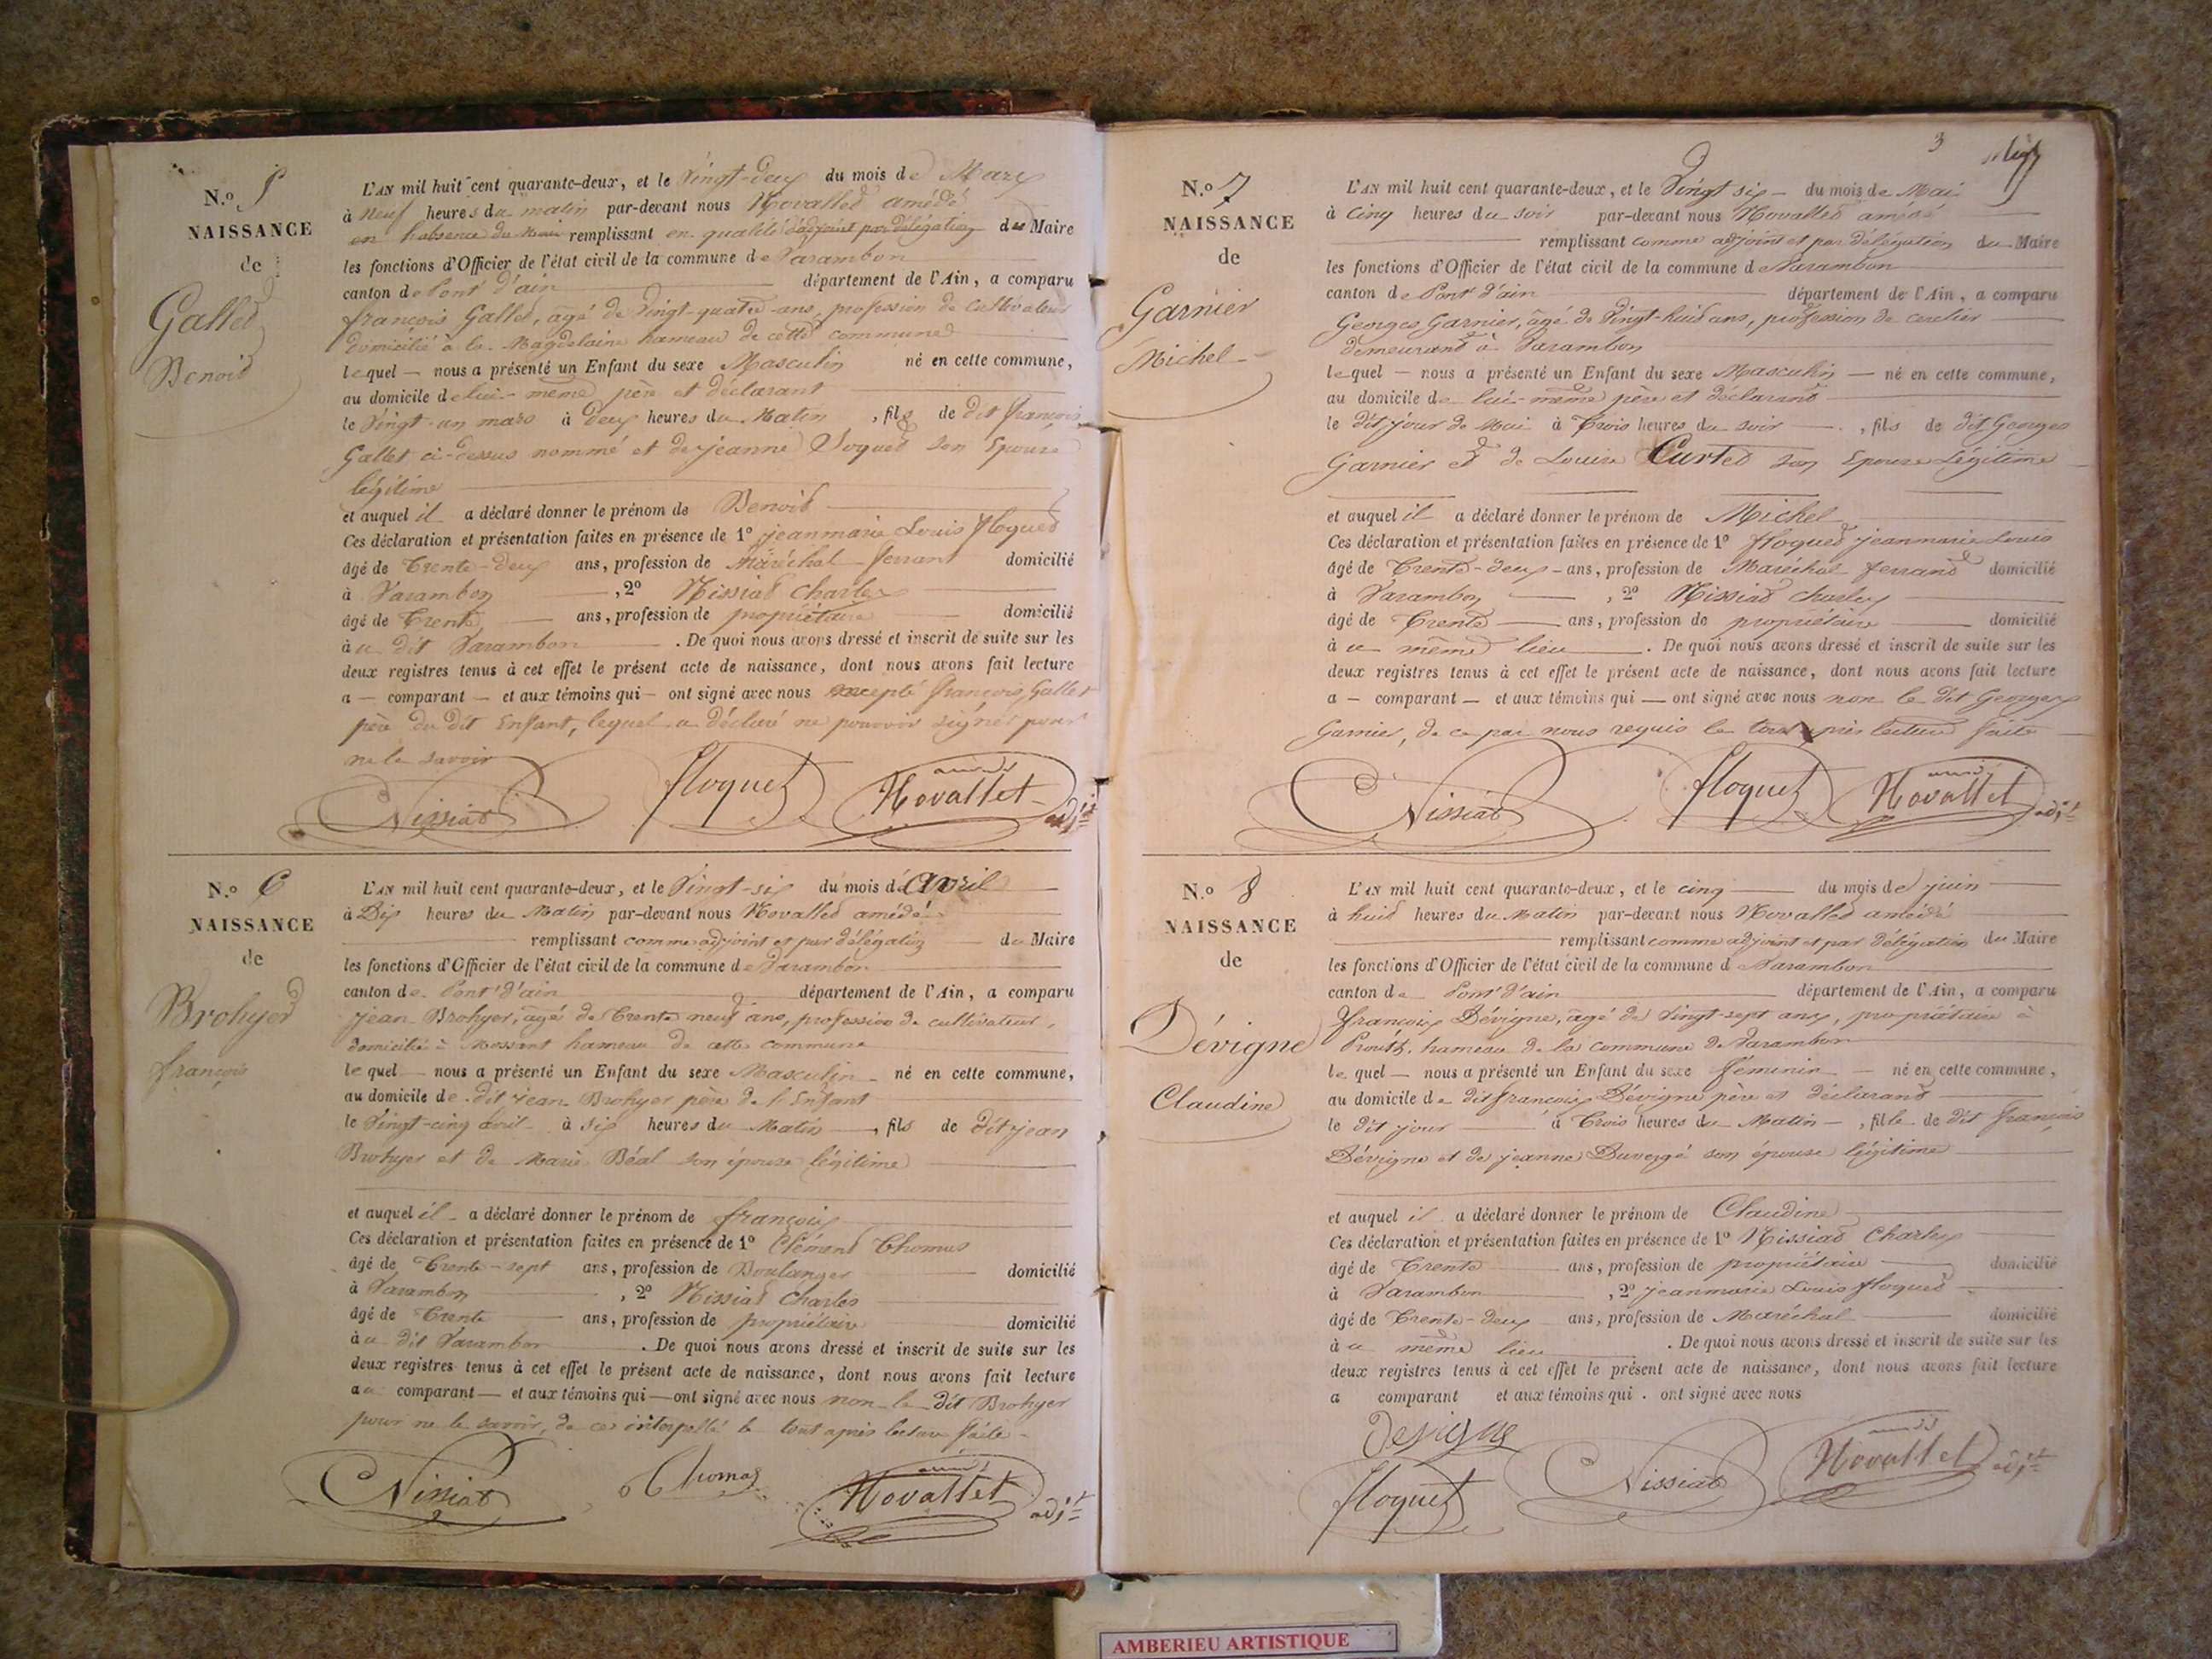 N.º 5
NAISSANCE
de
Gallet
Benoit
L'AN mil huit cent quarante-deux, et le Vingt-deux du mois de Mars
à Neuf heures du matin par-devant nous Novallet amédé
en l'absence du Maire remplissant en qualité d'adjoint par délégation du Maire
les fonctions d'Officier de l'état civil de la commune de Varambon
canton de Pont d'ain département de l'Ain, a comparu
françois Gallet, agé de Vingt-quatre ans, profession de Cultivateur
domicilié à la Magdelaine hameau de cette commune
lequel nous a présenté un Enfant du sexe Masculin né en cette commune,
au domicile de lui-même père et déclarant
le Vingt-un mars à deux heures du Matin, fils de dit françois
Gallet ci-dessus nommé et de jeanne son Epouse
légitime
et auquel il a déclaré donner le prénom de Benoit
Ces déclaration et présentation faites en présence de 1º jeanmarie Louis floquet
âgé de Trente-deux ans, profession de Maréchal ferrant domicilié
à Varambon, 2º Nissiat Charles
âgé de Trente ans, profession de propriétaire domicilié
à u dit Varambon. De quoi nous avons dressé et inscrit de suite sur les
deux registres tenus à cet effet le présent acte de naissance, dont nous avons fait lecture
a comparant et aux témoins qui ont signé avec nous excepté françois Gallet
père du dit Enfant, lequel a déclaré ne pouvoir signer pour
ne le savoir
Nissiat floquet amédé Novallet adjt
N.º 6
NAISSANCE
de
Brohyer
françois
L'AN mil huit cent quarante-deux, et le Vingt-six du mois d'avril
à Dix heures du Matin par-devant nous Novallet amédé
remplissant comme adjoint et par délégation du Maire
les fonctions d'Officier de l'état civil de la commune de Varambon
canton de Pont d'ain département de l'Ain, a comparu
jean Brohyer, agé de Trente neuf ans, profession de cultivateur,
domicilié à Mossant hameau de cette commune
lequel nous a présenté un Enfant du sexe Masculin né en cette commune,
au domicile de dit jean Brohyer père de l'Enfant
le Vingt-cinq avril à six heures du Matin, fils de dit jean
Brohyer et de Marie Béal son épouse légitime
et auquel il a déclaré donner le prénom de françois
Ces déclaration et présentation faites en présence de 1º Clément Thomas
âgé de Trente-sept ans, profession de Boulanger domicilié
à Varambon, 2º Nissiat Charles
âgé de Trente ans, profession de propriétaire domicilié
à u dit Varambon. De quoi nous avons dressé et inscrit de suite sur les
deux registres tenus à cet effet le présent acte de naissance, dont nous avons fait lecture
au comparant et aux témoins qui ont signé avec nous non le dit Brohyer
pour ne le savoir, de ce interpellé le tout après lecture faite
Nissiat Thomas amédé Novallet adjt
3
N.º 7
NAISSANCE
de
Garnier
Michel
L'AN mil huit cent quarante-deux, et le Vingt six du mois de Mai
à Cinq heures du soir par-devant nous Novallet amédé
remplissant comme adjoint et par délégation du Maire
les fonctions d'Officier de l'état civil de la commune de Varambon
canton de Pont d'ain département de l'Ain, a comparu
Georges Garnier, âgé de Vingt-huit ans, profession de
demeurant à Varambon
lequel nous a présenté un Enfant du sexe Masculin né en cette commune,
au domicile de lui-même père et déclarant
le dit jour de Mai à Trois heures du soir, fils de dit Georges
Garnier et de Louise Curtet son Epouse Légitime
et auquel il a déclaré donner le prénom de Michel
Ces déclaration et présentation faites en présence de 1º floquet jeanmarie Louis
âgé de Trente-deux ans, profession de Maréchal ferrant domicilié
à Varambon, 2º Nissiat Charles
âgé de Trente ans, profession de propriétaire domicilié
à u même lieu. De quoi nous avons dressé et inscrit de suite sur les
deux registres tenus à cet effet le présent acte de naissance, dont nous avons fait lecture
a comparant et aux témoins qui ont signé avec nous non le dit Georges
Garnier, de ce par nous requis le tout après lecture faite
Nissiat floquet amédé Novallet adjt
N.º 8
NAISSANCE
de
Dévigne
Claudine
L'AN mil huit cent quarante-deux, et le cinq du mois de juin
à huit heures du Matin par-devant nous Novallet amédé
remplissant comme adjoint et par délégation du Maire
les fonctions d'Officier de l'état civil de la commune de Varambon
canton de Pont d'ain département de l'Ain, a comparu
françois Dévigne, agé de Vingt-sept ans, propriétaire à
hameau de la commune de Varambon
lequel nous a présenté un Enfant du sexe féminin né en cette commune,
au domicile de dit françois Dévigne père et déclarant
le dit jour à Trois heures du Matin, fille de dit françois
Dévigne et de jeanne Duvergé son épouse légitime
et auquel il a déclaré donner le prénom de Claudine
Ces déclaration et présentation faites en présence de 1º Nissiat Charles
âgé de Trente ans, profession de propriétaire domicilié
à Varambon, 2º jeanmarie Louis floquet
âgé de Trente-deux ans, profession de Maréchal domicilié
à u même lieu. De quoi nous avons dressé et inscrit de suite sur les
deux registres tenus à cet effet le présent acte de naissance, dont nous avons fait lecture
a comparant et aux témoins qui ont signé avec nous
Devigne
floquet Nissiat amédé Novallet adjt
AMBERIEU ARTISTIQUE